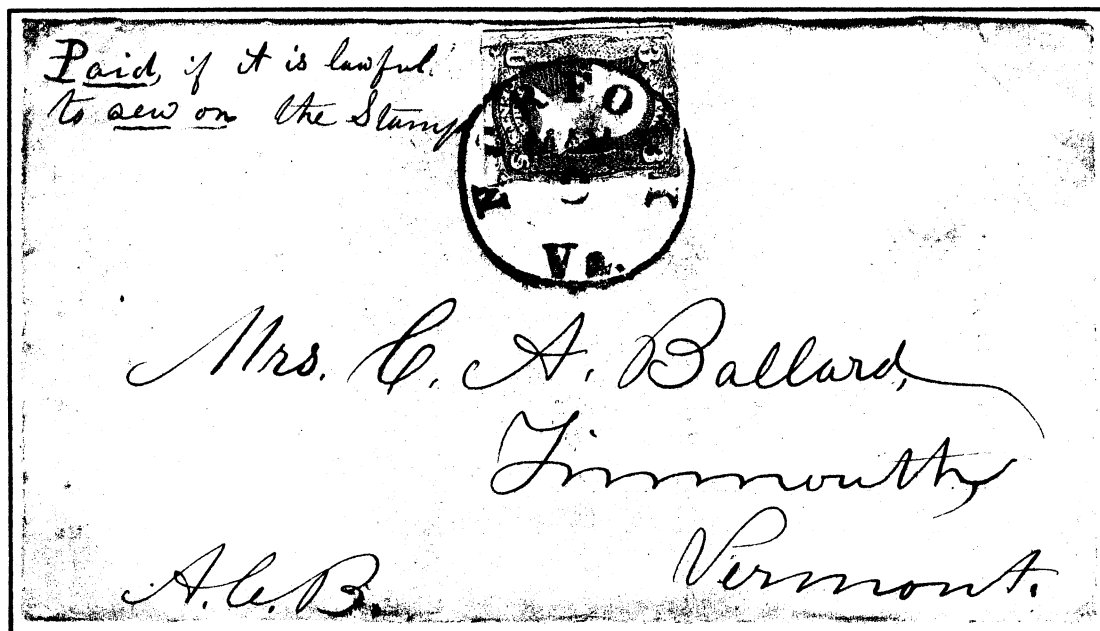 Paid, if it is lawful
to sew on the Stamp
Va.
Mrs. C. A. Ballard,
Tinmouth,
Vermont.
A. C. B.